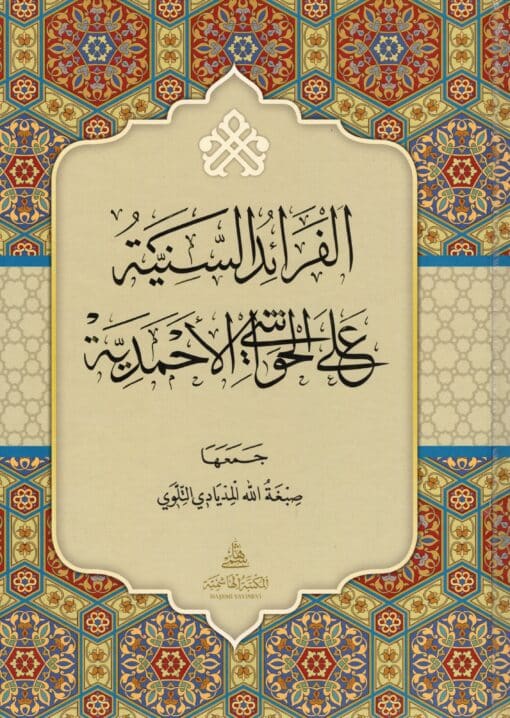 الفَرَائِدُ السَّنِيَّةُ
عَلَى الحَوَاشِي الأَحْمَدِيَّةْ
جَمَعَهَا
صِبْغَةُ الله المِذيَادِي التِّلَّوِي
هاشمي
المكتبة الهاشمية
HAŞİMİ YAYINEVİ